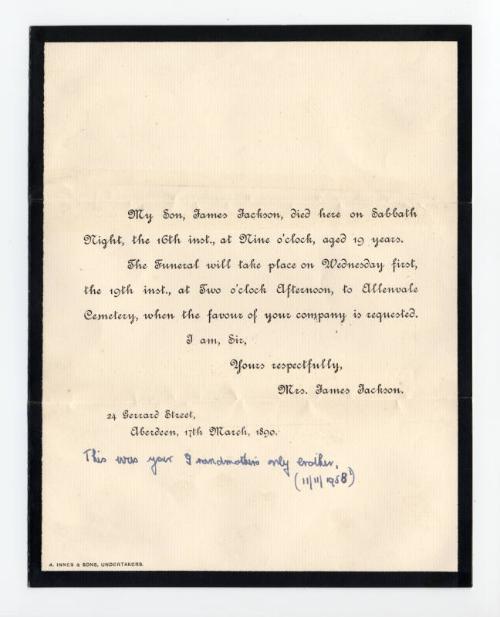 My Son, James Jackson, died here on Sabbath
Night, the 16th inst., at Nine o'clock, aged 19 years.
The Funeral will take place on Wednesday first,
the 19th inst., at Two o'clock Afternoon, to Allenvale
Cemetery, when the favour of your company is requested.
I am, Sir,
Yours respectfully,
Mrs. James Jackson.
24 Gerrard Street,
Aberdeen, 17th March, 1890.
This was your Grandmother's only brother,
(11/11/1958)
A. INNES & SONS, UNDERTAKERS.